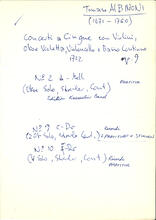 Tomaso ALBINONI
(1671 - 1760)
Concerti a Cinque con Violini,
Oboe, Violetta, Violoncello e Basso Continuo
1722
op. 9
No 2 d-Moll
(Oboe Solo, Streicher, Cont)
PARTITUR
Edition
No 9 C-Dur
(2 Ob Solo, Streicher, Cont)
PARTITUR + STIMMEN
No 10 F-Dur
(Solo, Streicher, Cont)
PARTITUR